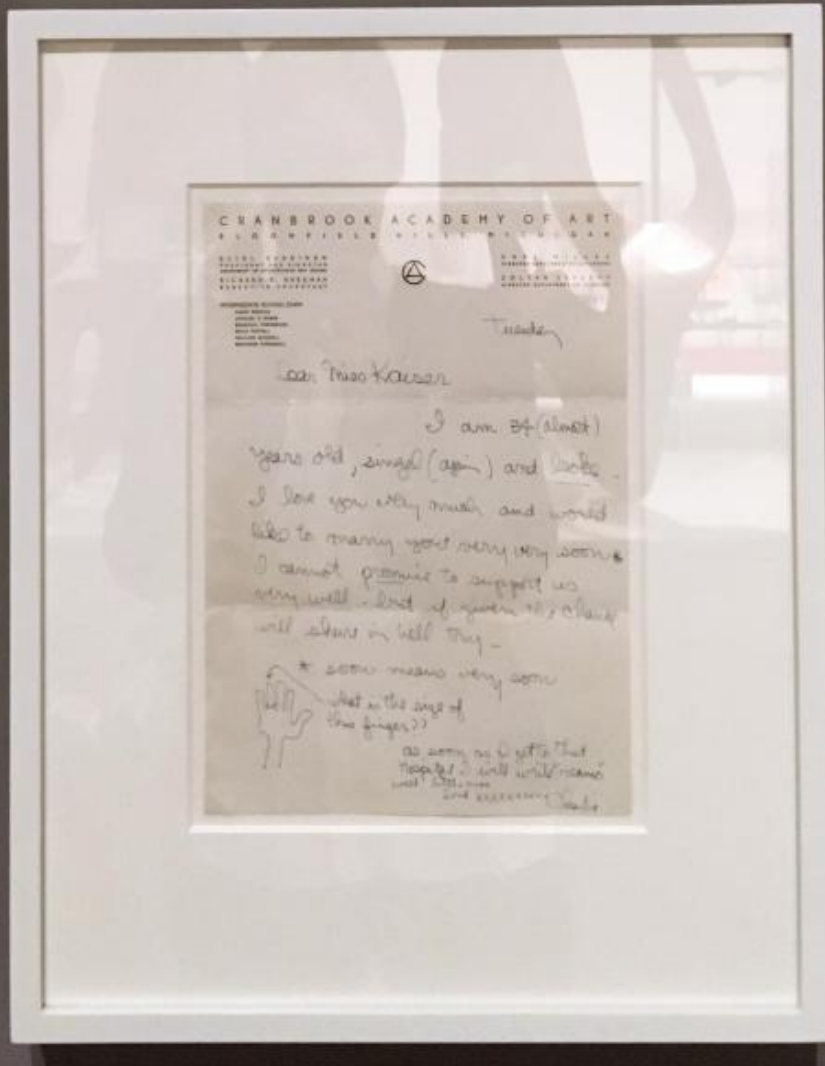 CRANBROOK ACADEMY OF ART
BLOOMFIELD HILLS MICHIGAN
Tuesday
Dear Miss Kaiser
I am 34 (almost)
years old, singel (again) and broke.
I love you very much and would
like to marry you very very soon*
I cannot promise to support us
very well. but if given the chance
will shure in hell try-
* soon means very soon
what is the size of
this finger??
as soon as I get to that
hospital I will write "reams"
well little ones
love xxxxxxxxxx Charlie